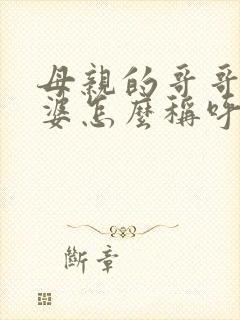 母親的哥哥
婆怎麼稱呼
斷章